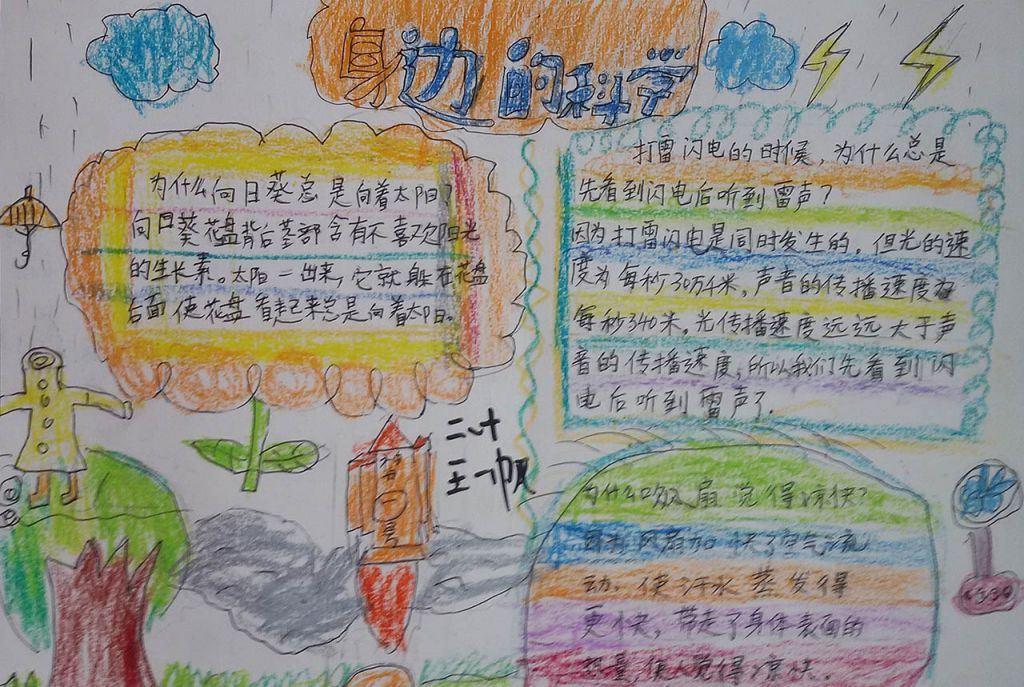 身边的科学
为什么向日葵总是向着太阳?
向日葵花盘背后茎部含有不喜欢阳光
的生长素。太阳一出来,它就躲在花盘
后面使花盘看起来总是向着太阳。
打雷闪电的时候,为什么总是
先看到闪电后听到雷声?
因为打雷闪电是同时发生的,但光的速
度为每秒30万千米,声音的传播速度为
每秒340米。光传播速度远远大于声
音的传播速度,所以我们先看到闪
电后听到雷声了.
二计
王一帆
为什么吹风扇觉得凉快?
加快了空气流
动,使汗水蒸发得
更快,带走了身体表面的
热量,使人觉得凉快.